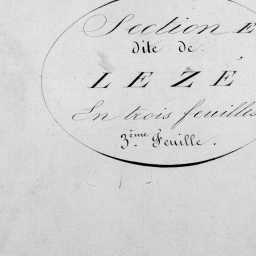 Section E
dite de
LEZÉ
En trois feuilles
3.ème Feuille.